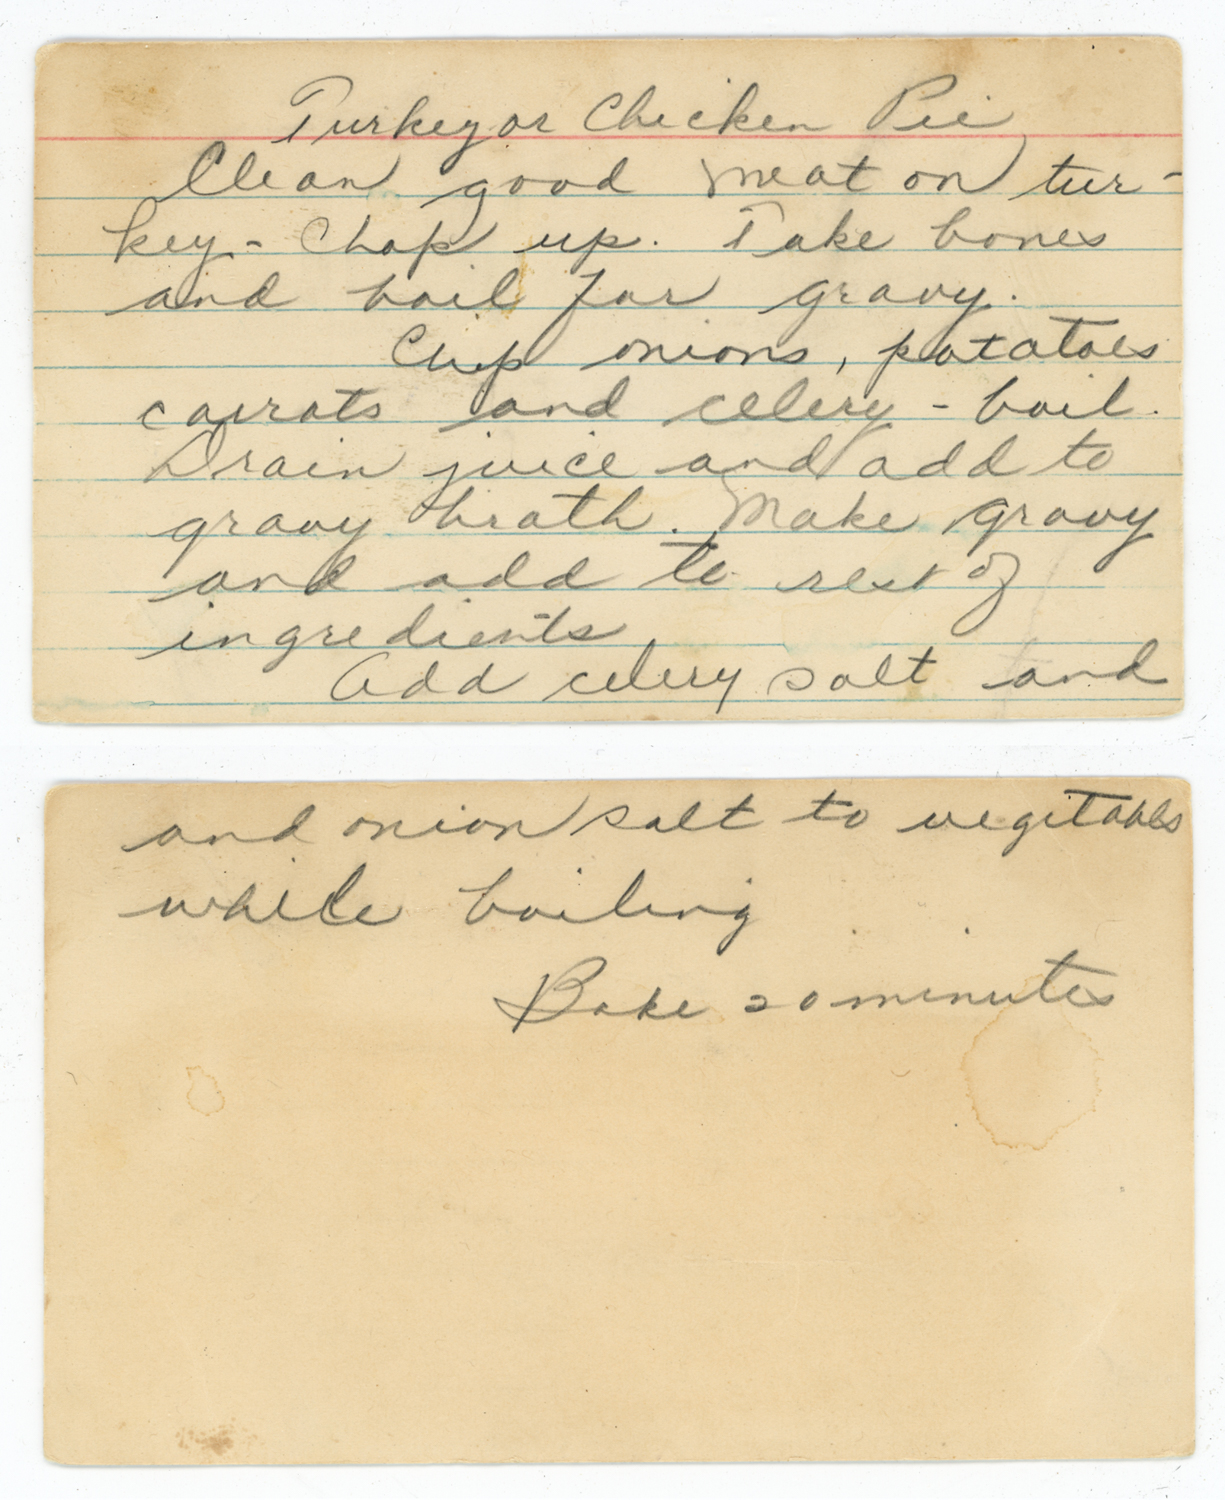 Turkey or Chicken Pie
Clean good meat on tur-
key - Chop up. Take bones
and boil for gravy.
Chip onions, potatoes
carrots and celery - boil.
Drain juice and add to
gravy broth. Make gravy
and add to rest of
ingredients
Add celery salt and
and onion salt to vegitables
while boiling
Bake 20 minutes